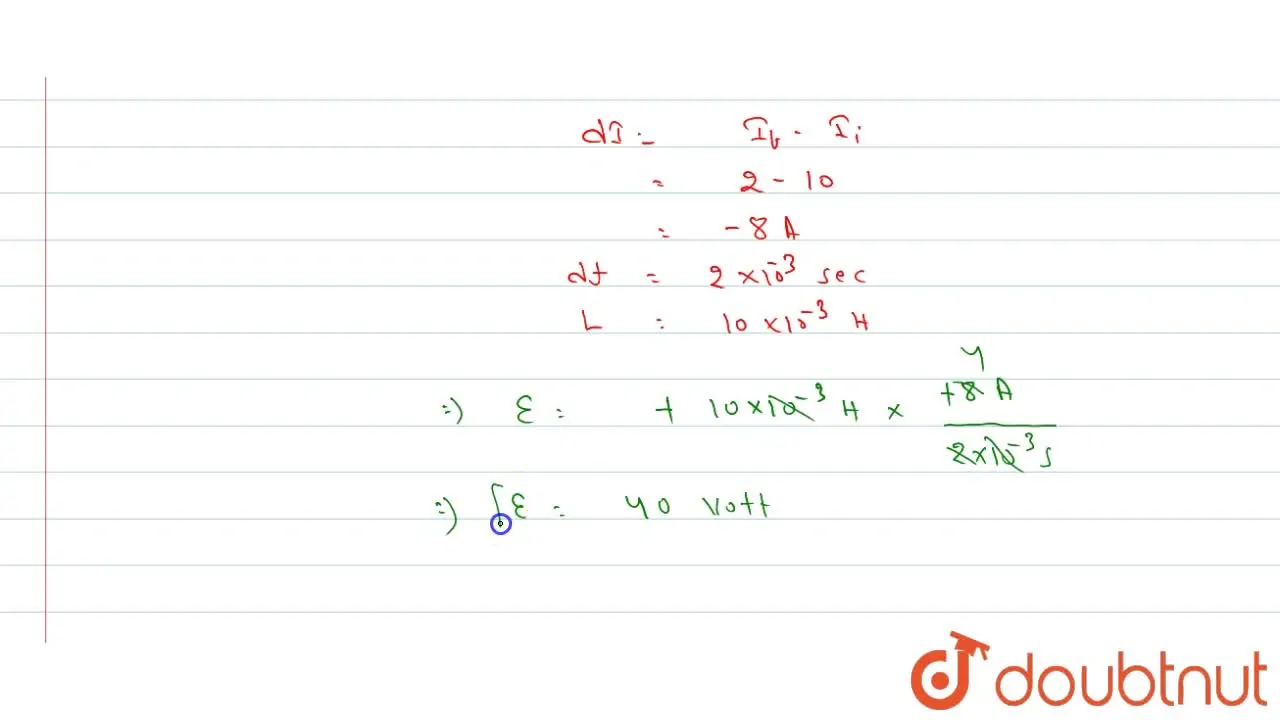 dI = I_f - I_i
= 2 - 10
= - 8 A
dt = 2 × 10⁻³ sec
L = 10 × 10⁻³ H
4
=) ε = + 10 × 10⁻³ H × +8 A / 2 × 10⁻³ s
=) ε = 40 Volt
doubtnut